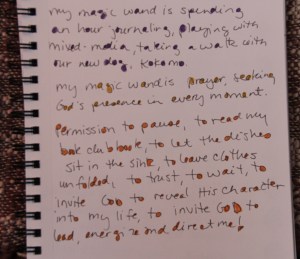 my magic wand is spending
an hour journaling, playing with
mixed-media, taking a walk with
our new dog, Kokomo.
my magic wand is prayer, seeking
God's presence in every moment.
Permission to pause, to read my
book club book, to let the dishes
sit in the sink, to leave clothes
unfolded, to trust, to wait, to
invite God to reveal His character
into my life, to invite God to
lead, energize and direct me!